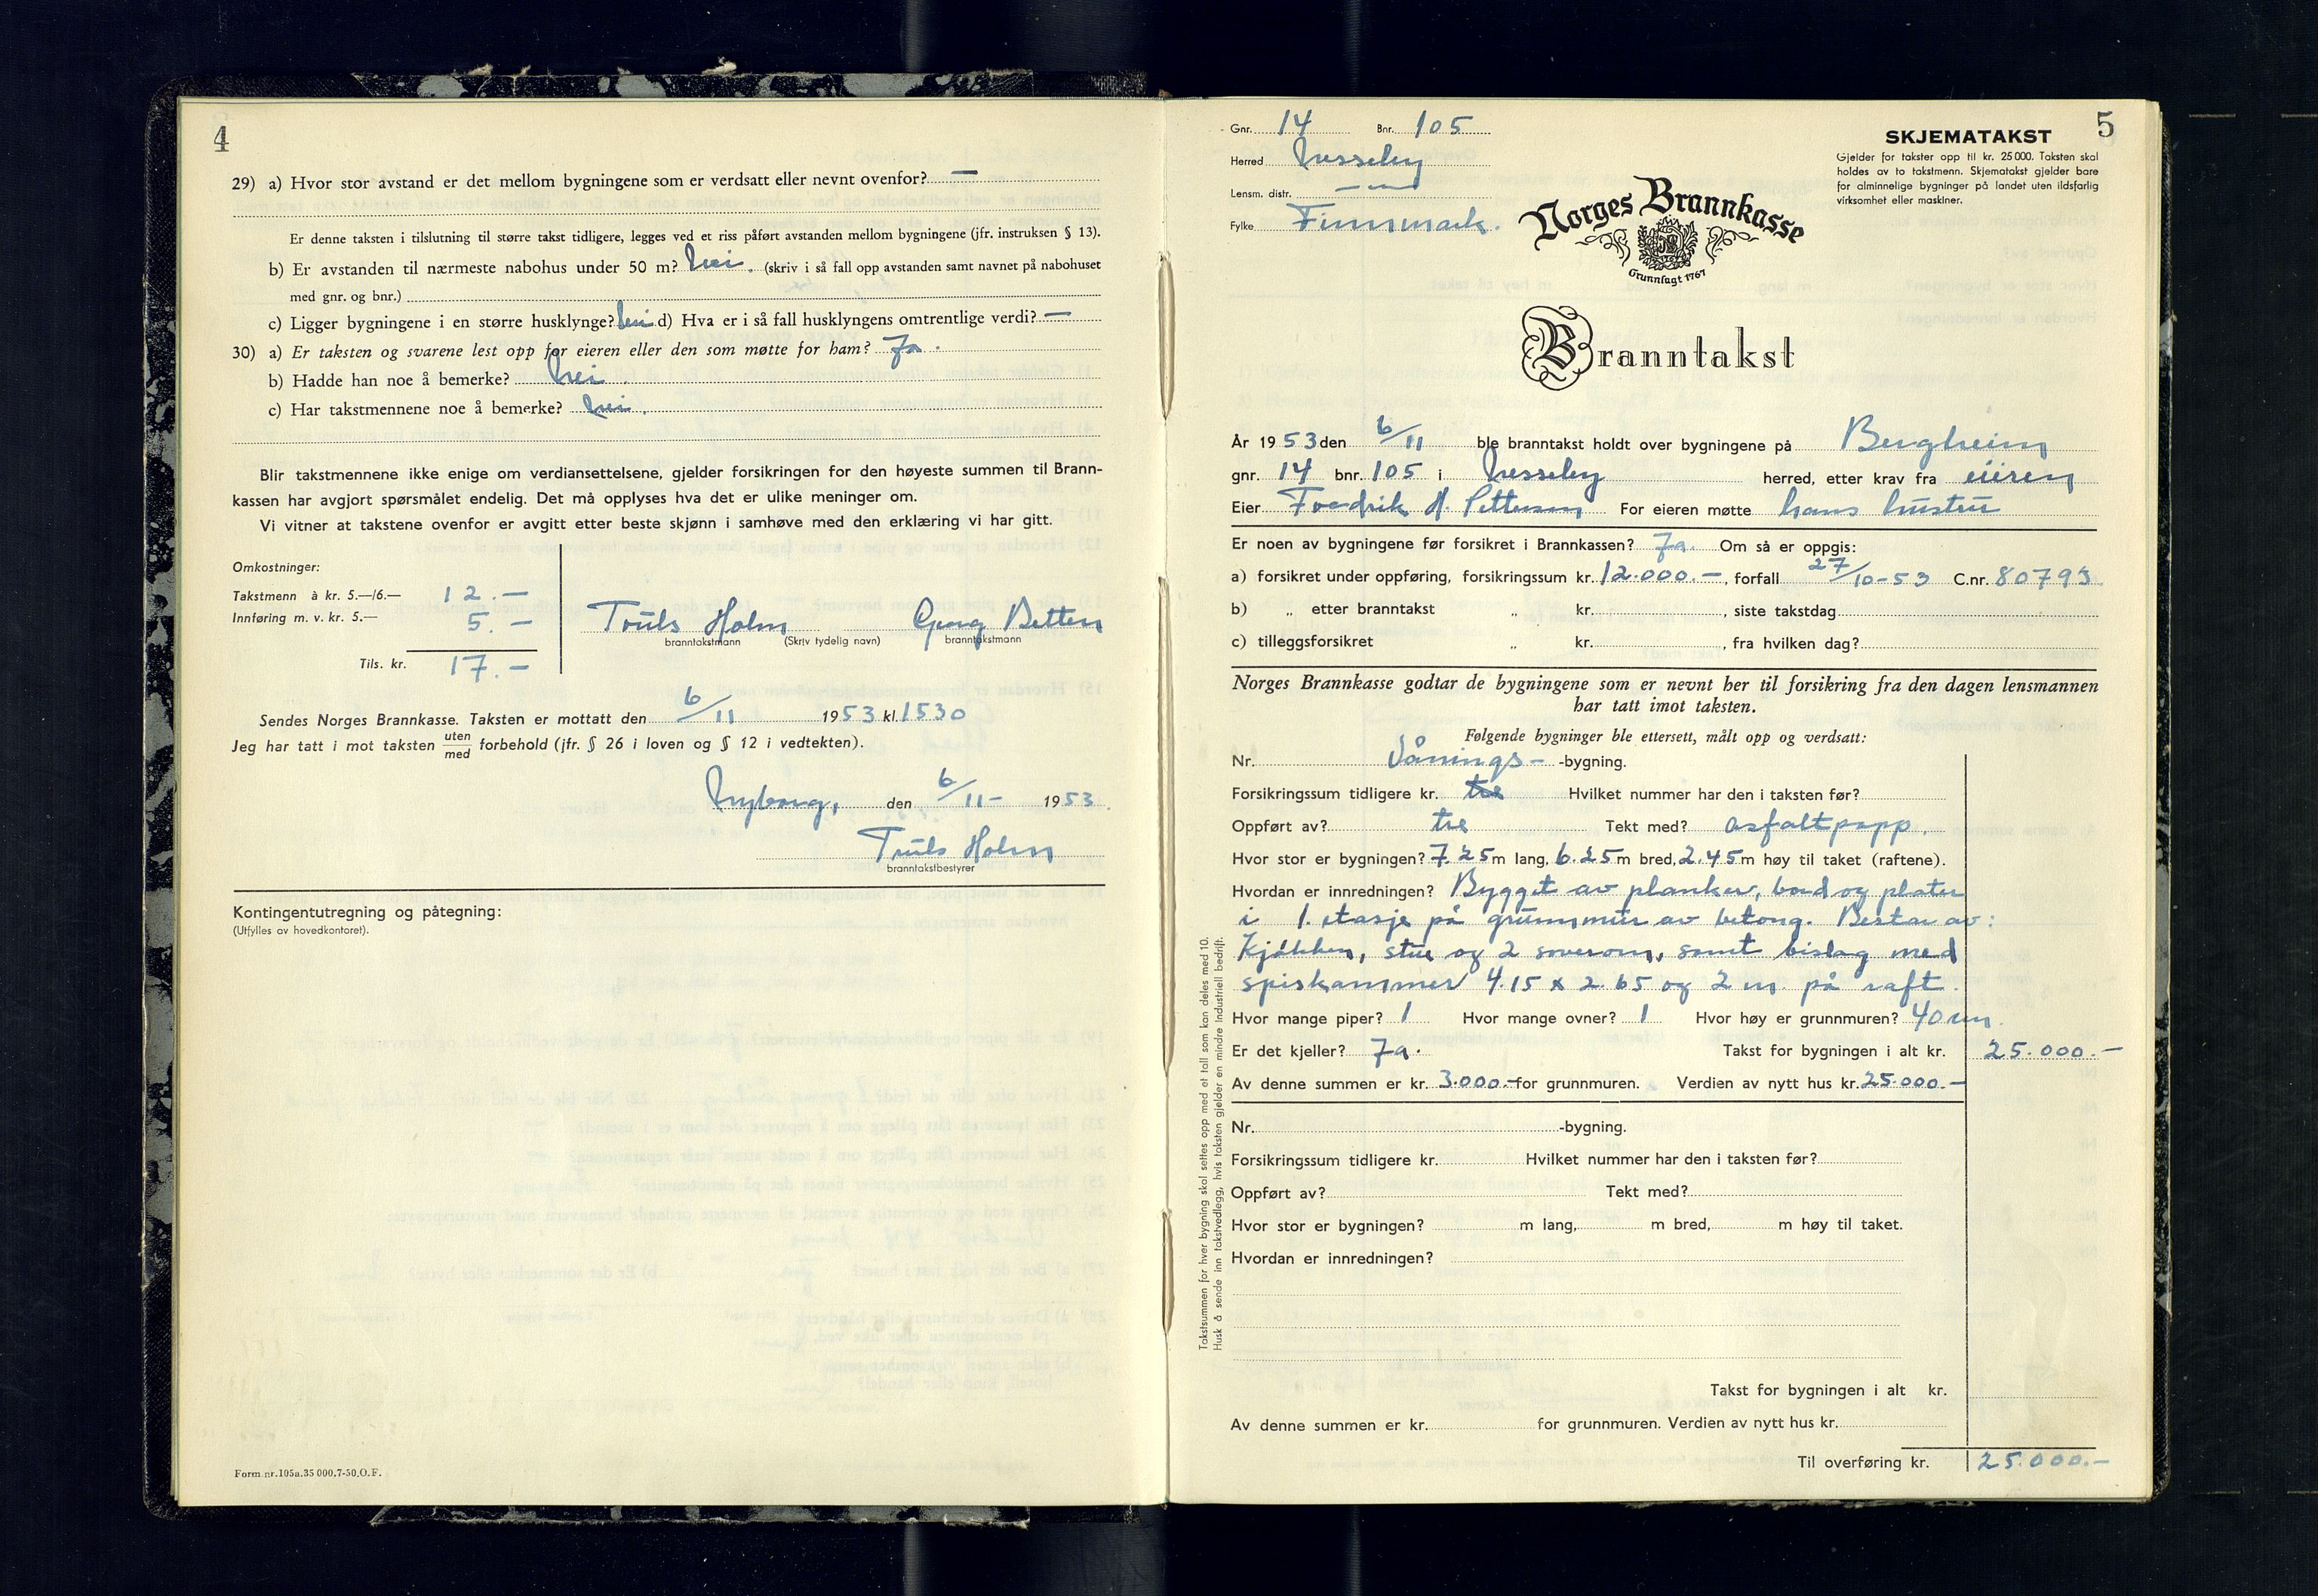 4
29) a) Hvor stor avstand er det mellom bygningene som er verdsatt eller nevnt ovenfor? —
Er denne taksten i tilslutning til større takst tidligere, legges ved et riss påført avstanden mellom bygningene (jfr. instruksen § 13).
b) Er avstanden til nærmeste nabohus under 50 m? Nei. (skriv i så fall opp avstanden samt navnet på nabohuset
med gnr. og bnr.)
c) Ligger bygningene i en større husklynge? Nei d) Hva er i så fall husklyngens omtrentlige verdi? —
30) a) Er taksten og svarene lest opp for eieren eller den som møtte for ham? Ja.
b) Hadde han noe å bemerke? Nei.
c) Har takstmennene noe å bemerke? Nei.
Blir takstmennene ikke enige om verdiansettelsene, gjelder forsikringen for den høyeste summen til Brann-
kassen har avgjort spørsmålet endelig. Det må opplyses hva det er ulike meninger om.
Vi vitner at takstene ovenfor er avgitt etter beste skjønn i samhøve med den erklæring vi har gitt.
Omkostninger:
Takstmenn à kr. 5.—/6.— 12.—
Innføring m. v. kr. 5.— 5.—
Tils. kr. 17.—
Truls Holm Georg Betten
branntakstmann (Skriv tydelig navn) branntakstmann
Sendes Norges Brannkasse. Taksten er mottatt den 6/11 1953 kl. 1530
Jeg har tatt i mot taksten uten/med forbehold (jfr. § 26 i loven og § 12 i vedtekten).
Nyborg, den 6/11- 1953.
Truls Holm
branntakstbestyrer
Kontingentutregning og påtegning:
(Utfylles av hovedkontoret).
Form nr. 105a. 35 000. 7-50. O. F.
5
Gnr. 14 Bnr. 105
Herred Nesseby
Lensm. distr. — " —
Fylke Finnmark.
SKJEMATAKST
Gjelder for takster opp til kr. 25 000. Taksten skal
holdes av to takstmenn. Skjematakst gjelder bare
for alminnelige bygninger på landet uten ildsfarlig
virksomhet eller maskiner.
Norges Brannkasse
Grunnlagt 1767
Branntakst
År 1953 den 6/11 ble branntakst holdt over bygningene på Bergheim
gnr. 14 bnr. 105 i Nesseby herred, etter krav fra eieren
Eier Fredrik H. Pettersen For eieren møtte hans hustru
Er noen av bygningene før forsikret i Brannkassen? Ja. Om så er oppgis:
a) forsikret under oppføring, forsikringssum kr. 12.000.—, forfall 27/10-53 C.nr. 80793
b) „ etter branntakst „ kr. , siste takstdag
c) tilleggsforsikret „ kr. , fra hvilken dag?
Norges Brannkasse godtar de bygningene som er nevnt her til forsikring fra den dagen lensmannen
har tatt imot taksten.
Følgende bygninger ble ettersett, målt opp og verdsatt:
Nr. Vånings- -bygning.
Forsikringssum tidligere kr. tre Hvilket nummer har den i taksten før?
Oppført av? tre Tekt med? asfaltpapp.
Hvor stor er bygningen? 7.25 m lang, 6.25 m bred, 2.45 m høy til taket (raftene).
Hvordan er innredningen? Bygget av planker, bord og plater
i 1. etasje på grunnmur av betong. Bestar av:
Kjøkken, stue og 2 soverom, samt bislag med
spiskammer 4.15 x 2.65 og 2 m. på raft.
Hvor mange piper? 1 Hvor mange ovner? 1 Hvor høy er grunnmuren? 40 cm.
Er det kjeller? Ja. Takst for bygningen i alt kr. 25.000.—
Av denne summen er kr. 3.000.— for grunnmuren. Verdien av nytt hus kr. 25.000.—
Nr. -bygning.
Forsikringssum tidligere kr. Hvilket nummer har den i taksten før?
Oppført av? Tekt med?
Hvor stor er bygningen? m lang, m bred, m høy til taket.
Hvordan er innredningen?
Takst for bygningen i alt kr.
Av denne summen er kr. for grunnmuren. Verdien av nytt hus kr.
Til overføring kr. 25.000.—
Takstsummen for hver bygning skal settes opp med et tall som kan deles med 10.
Husk å sende inn takstvedlegg, hvis taksten gjelder en mindre industriell bedrift.